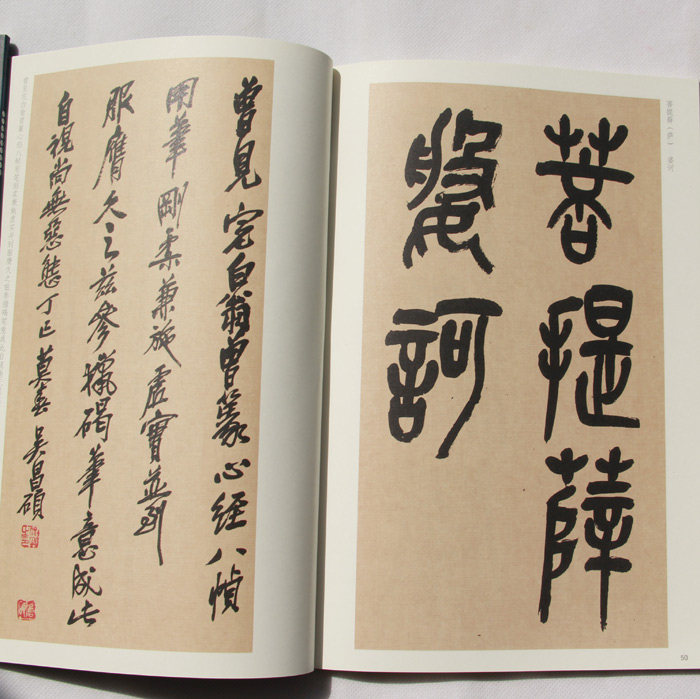 菩提薩
婆訶
50
曾見完白翁曾篆心經八幀
用筆剛柔兼施虛實並到
服膺久之茲參獵碣筆意成此
自視尚無惡態丁巳莫春吳昌碩